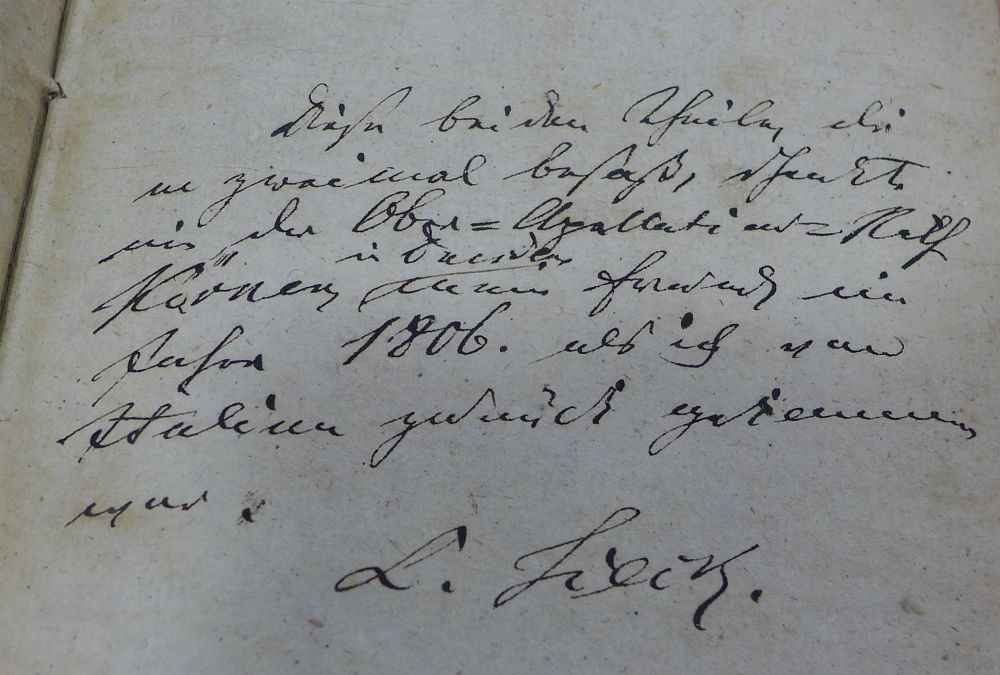 Diese beiden Theile, die
er zweimal besaß, schenkte
mir der Ober=Apellations=Rath
in Dresden
Körner, mein Freund im
Jahre 1806. als ich von
Italien zurück gekommen
war.
L. Tieck.